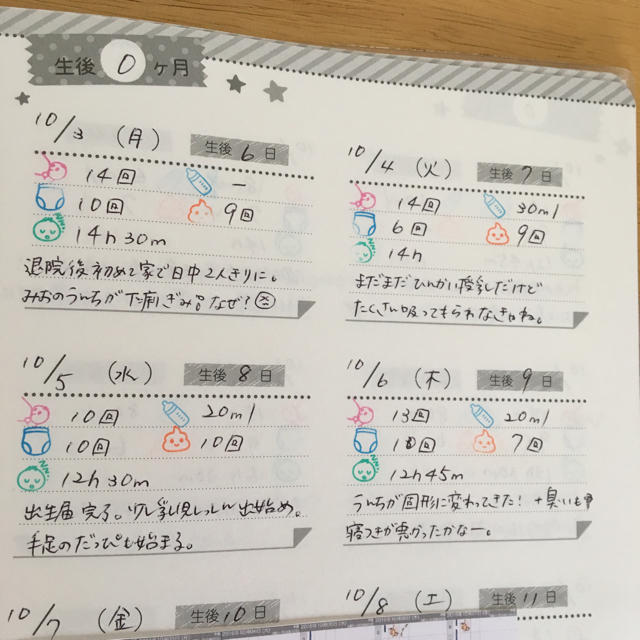 生後 0 ヶ月
10/3 (月) 生後 6 日
14回 ー
10回 9回
14h 30m
退院後初めて家で日中2人きりに。
みおのうんちが下痢ぎみ。なぜ？
10/4 (火) 生後 7 日
14回 30ml
6回 9回
14h
まだまだひんかい授乳だけど
たくさん吸ってもらわなきゃね。
10/5 (水) 生後 8 日
10回 20ml
10回 10回
12h 30m
出生届完了。乳児しっしん出始め。
手足のだっぴも始まる。
10/6 (木) 生後 9 日
13回 20ml
10回 7回
12h 45m
うんちが固形に変わってきた！ + 臭いも
寝つきが悪かったかなー。
10/7 (金) 生後 10 日
10/8 (土) 生後 11 日